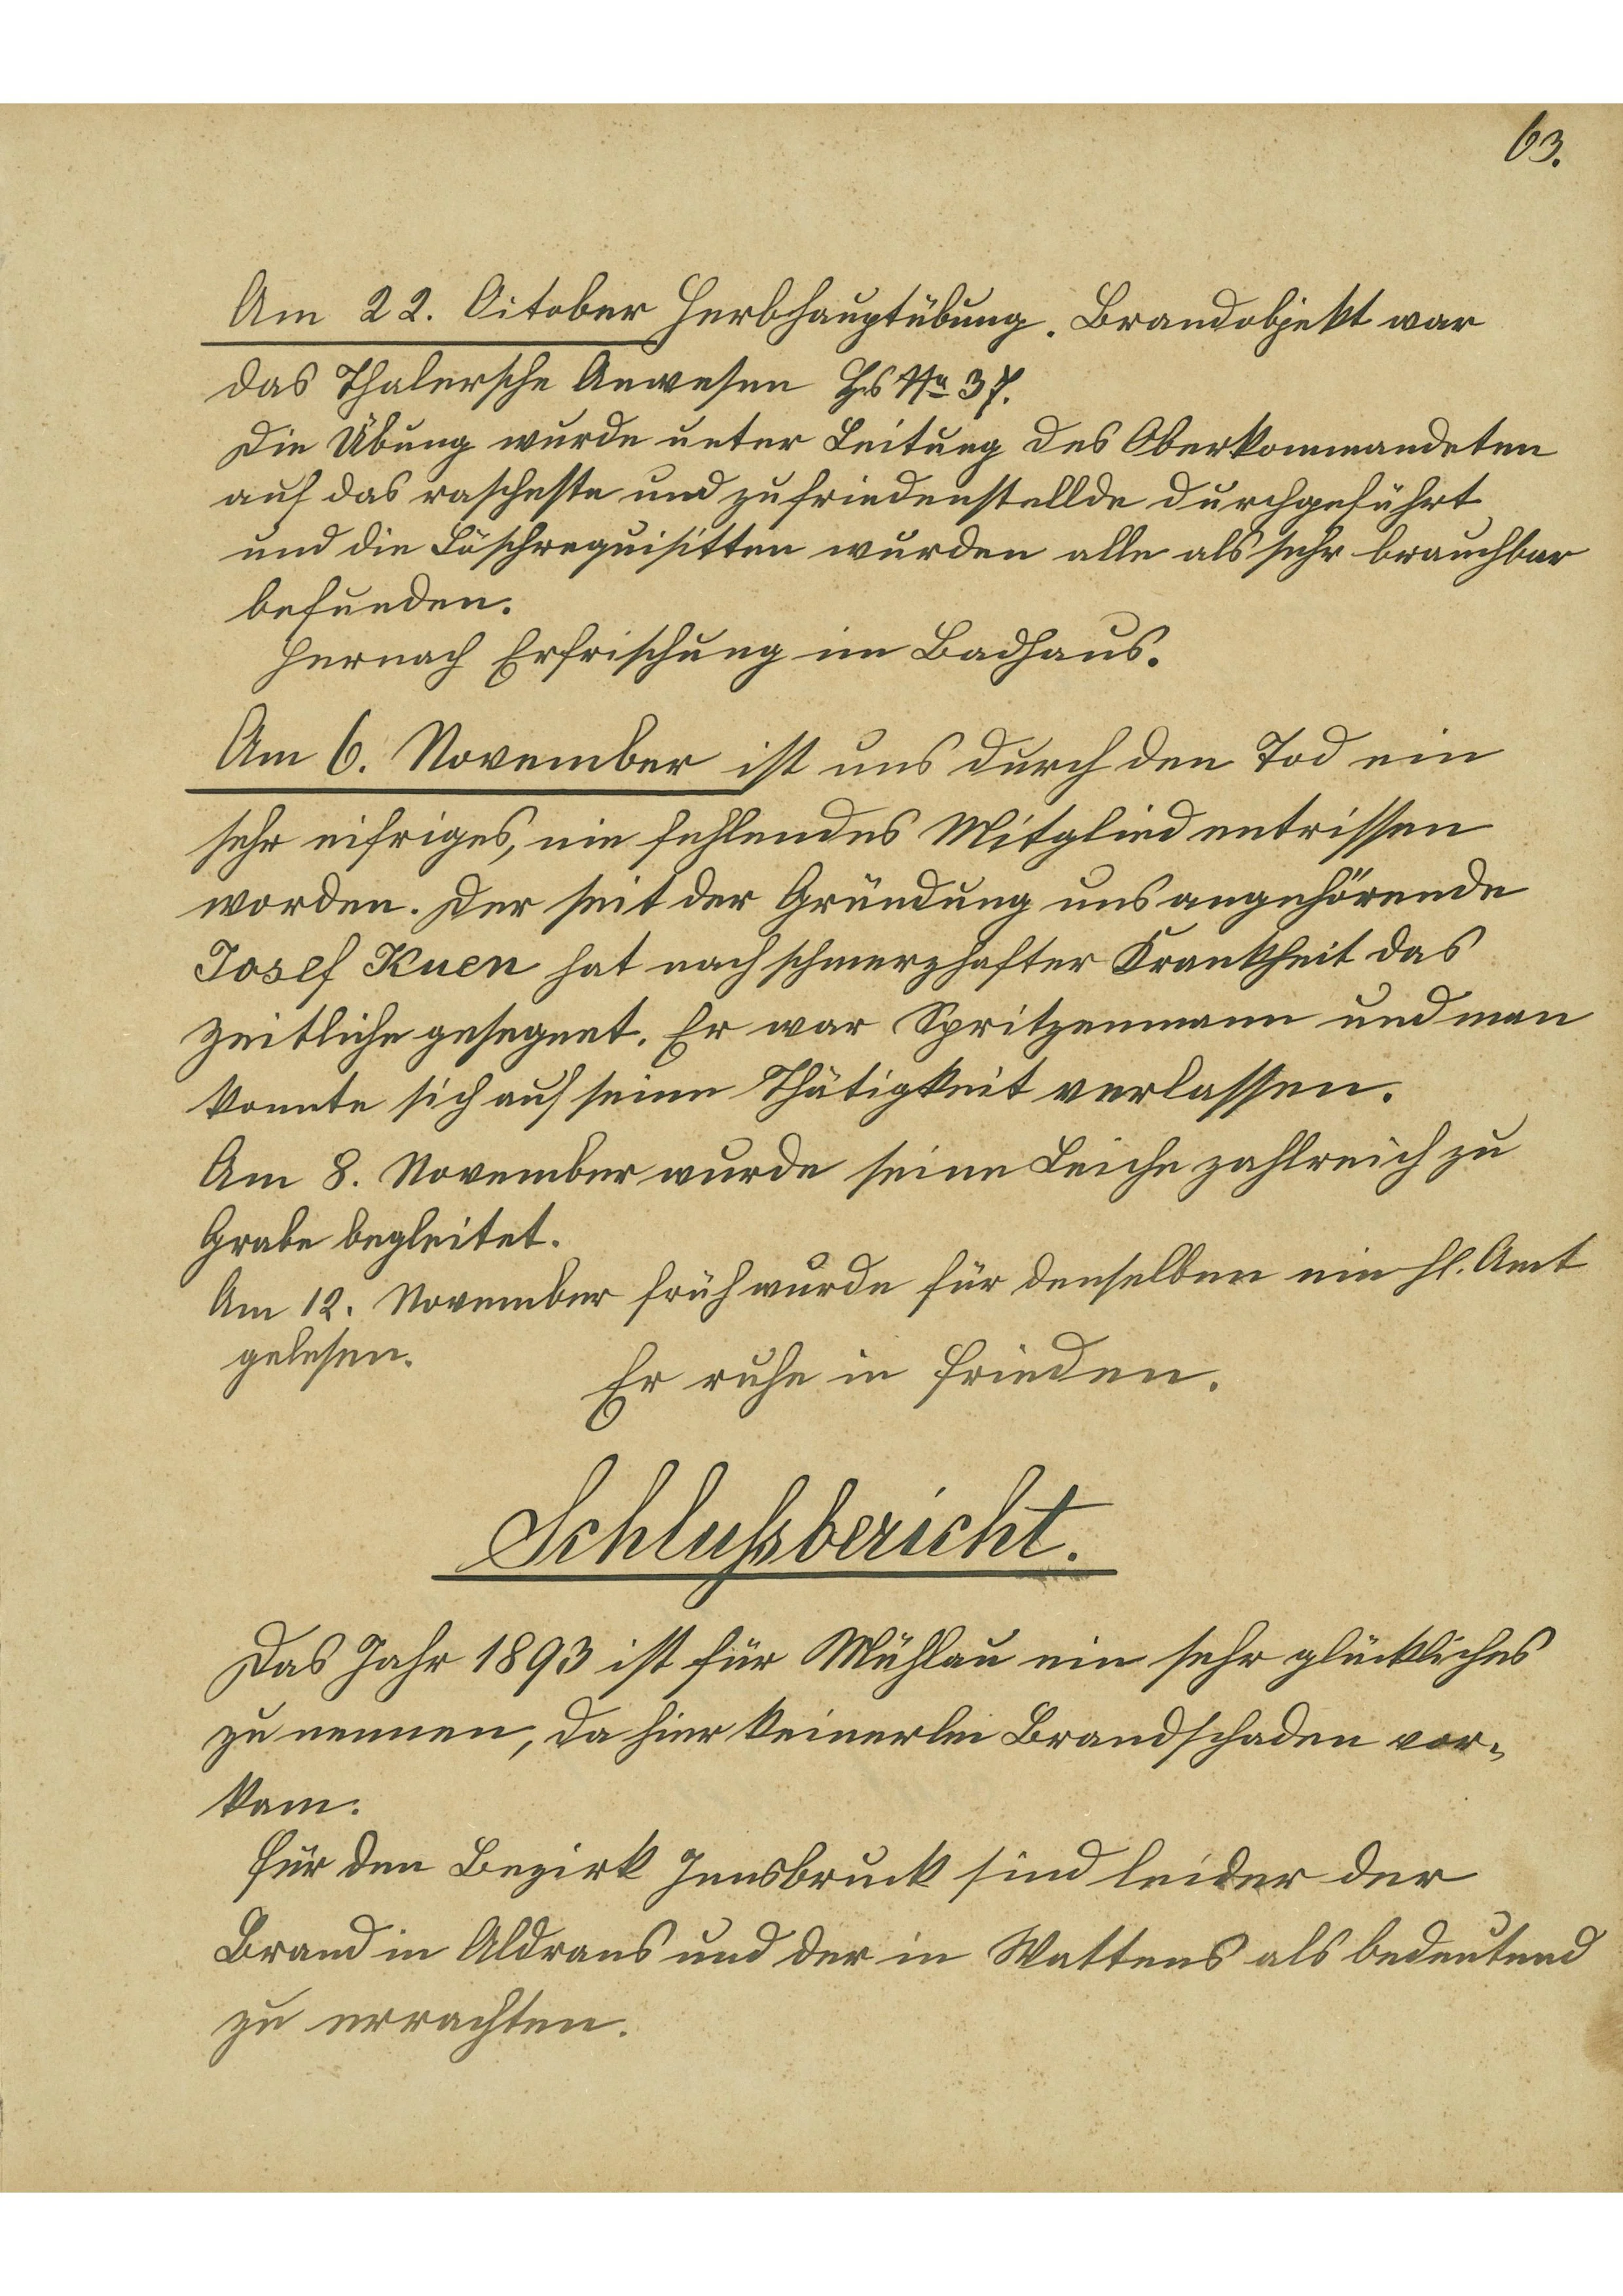 63.
Am 22. Oitober Herbhauptübung. Brandobjekt war
das Thalersche Anwesen Hs No 37.
Die Übung wurde unter Leitung des Oberkommandeten
auf das rascheste und zufriedenstellde durchgeführt
und die Löschrequisitten wurden alle als sehr brauchbar
befunden.
Hernach Erfrischung im Badhaus.
Am 6. November ist uns durch den Tod ein
sehr eifriges, nie fehlendes Mitglied entrissen
worden. Der seit der Gründung uns angehörende
Josef Kuen hat nach schmerzhafter Krankheit das
Zeitliche gesegnet. Er war Spritzenmann und man
konnte sich auf seine Thätigkeit verlassen.
Am 8. November wurde seine Leiche zahlreich zu
Grabe begleitet.
Am 12. November früh wurde für denselben ein hl. Amt
gelesen.
Er ruhe in Frieden.
Schlußbericht.
Das Jahr 1893 ist für Mühlau ein sehr glückliches
zu nennen, da hier keinerlei Brandschaden vor-
kam.
Für den Bezirk Innsbruck sind leider der
Brand in Aldrans und der in Wattens als bedeutend
zu errachten.